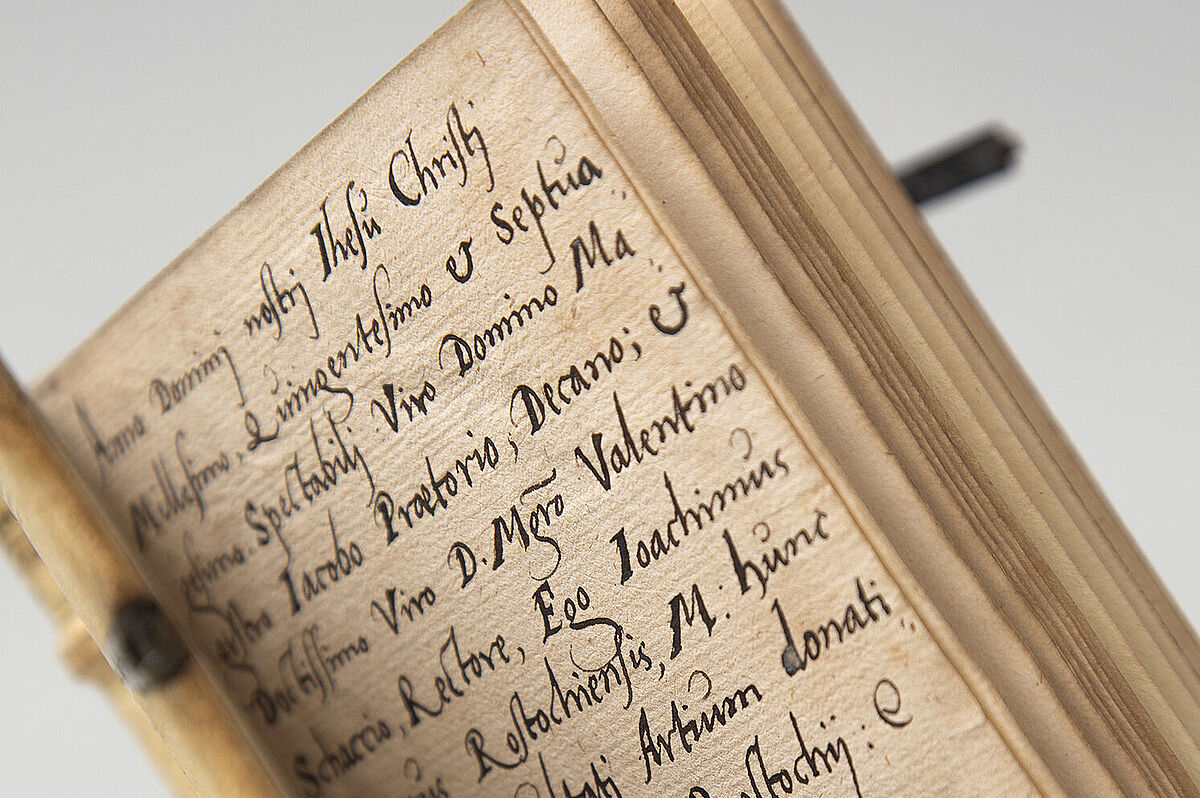 Anno Dominj nostrj Ihesu Christj
Millesimo, Quingentesimo & Septua
gesimo. Spectabilj Viro Domino Ma
gistro Iacobo Praetorio, Decano; &
Doctissimo Viro D. Mgrō Valentino
Schaccio, Rectore, Ego Ioachimus
Rostochiensis, M: hunc
Artium donati
Rostochij: e